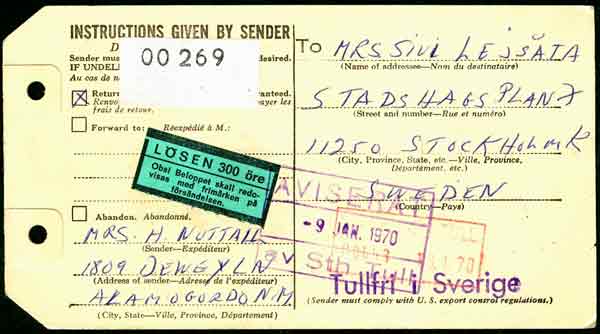 INSTRUCTIONS GIVEN BY SENDER
00 269
Sender must
desired.
IF UNDEL
Au cas de no
☒ Return
anteed.
Renvo
payer les
frais de retour.
☐ Forward to: Réexpédié à M.:
LÖSEN 300 öre
Obs! Beloppet skall redo-
visas med frimärken på
försändelsen.
☐ Abandon. Abandonné.
MRS. H. NUTTALL
(Sender—Expéditeur)
1809 DEWEY LN
(Address of sender—Adresse de l'expéditeur)
ALAMOGORDO N.M.
(City, State—Ville, Province, Département)
To MRS SIVI LEJSÄTA
(Name of addressee—Nom du destinataire)
STADSHAGSPLAN 7
(Street and number—Rue et numéro)
11250 STOCKHOLM K
(City, Province, State, etc.—Ville, Province,
Département, etc.)
SWEDEN
(Country—Pays)
AVISERAT
-9 JAN. 1970
Sth
TULL
70
Tullfri i Sverige
(Sender must comply with U.S. export control regulations.)